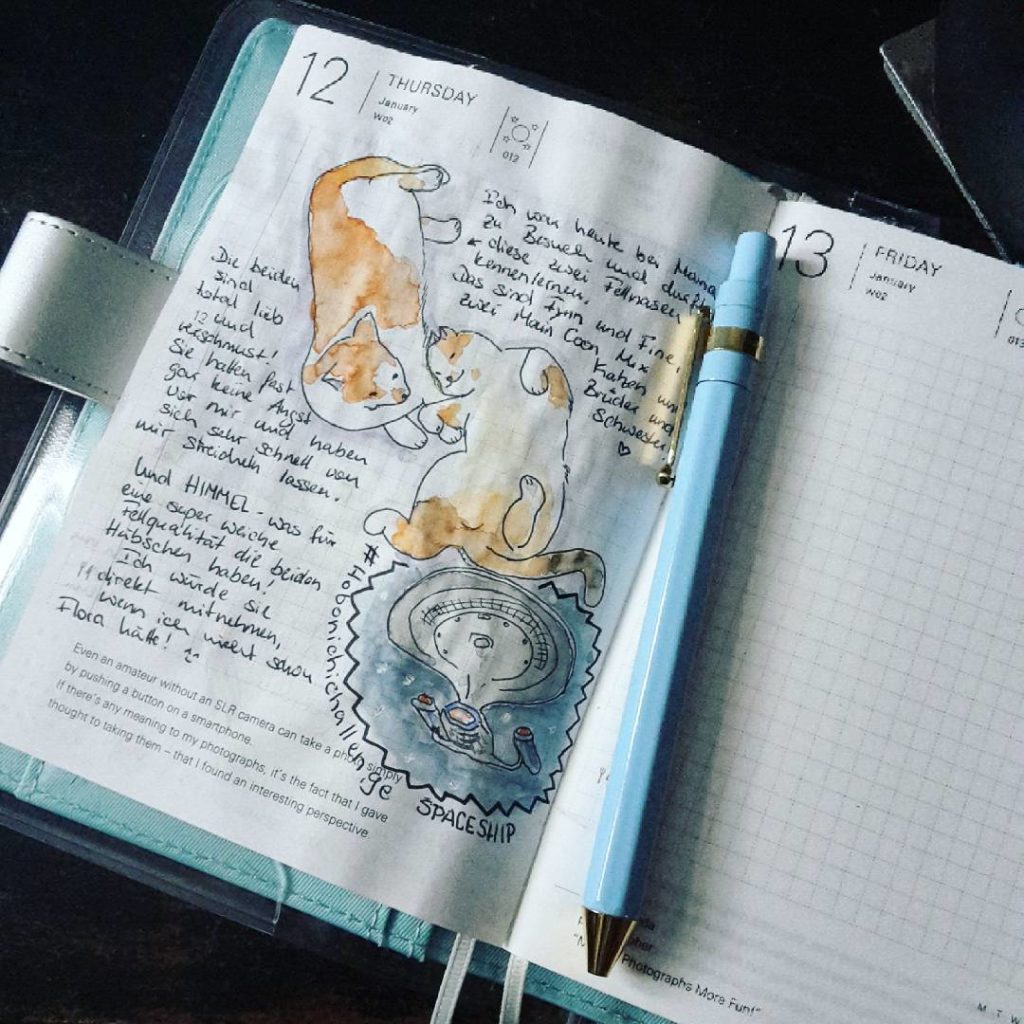 12
THURSDAY
January
W02
012
Ich war heute bei Mama
zu Besuch und durfte
diese zwei Fellnasen
kennenlernen.
Das sind Finn und Fine,
zwei Main Coon Mix
Katzen und
Brüder und
Schwester
Die beiden
sind
total lieb
und
verschmust!
Sie hatten fast
gar keine Angst
vor mir und haben
sich sehr schnell von
mir streicheln lassen.
Und HIMMEL - was für
eine super weiche
Fellqualität die beiden
Hübschen haben!
Ich würde sie
direkt mitnehmen,
wenn ich nicht schon
Flora hätte!
#hobonichichallenge
SPACESHIP
Even an amateur without an SLR camera can take a photo simply
by pushing a button on a smartphone.
If there's any meaning to my photographs, it's the fact that I gave
thought to taking them – that I found an interesting perspective.
13
FRIDAY
January
W02
013
Photographs More Fun!"
M T W